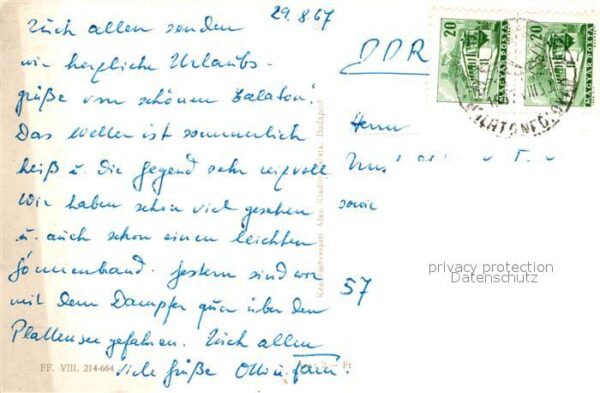 29.8.67
Euch allen senden
wir herzliche Urlaubs-
grüße vom schönen Balaton!
Das Wetter ist sommerlich
heiß u. die Gegend sehr reizvoll
Wir haben schon viel gesehen
u. auch schon einen leichten
Sonnenbrand. Gestern sind wir
mit dem Dampfer quer über den
Plattensee gefahren. Euch allen
viele Grüße Otto u. Fam.
DDR
Herrn
sowie
57
20
MAGYAR POSTA
20
MAGYAR POSTA
Képzőművészeti Alap Kiadóvállalata, Budapest
privacy protection
Datenschutz
FF. VIII. 214-664
Ft